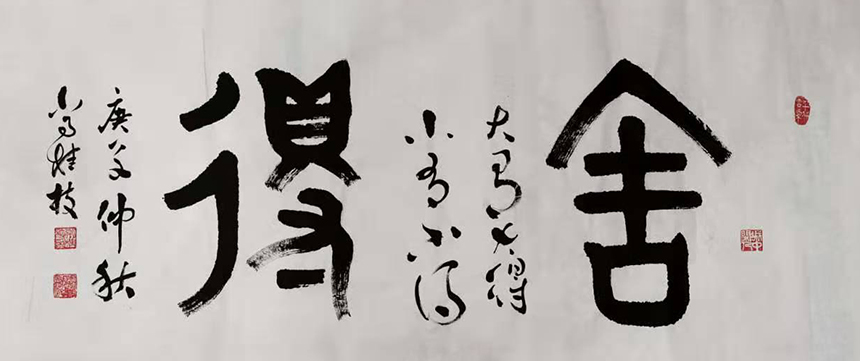 舍
大舍大得
小舍小得
得
庚子仲秋
尚桂枝